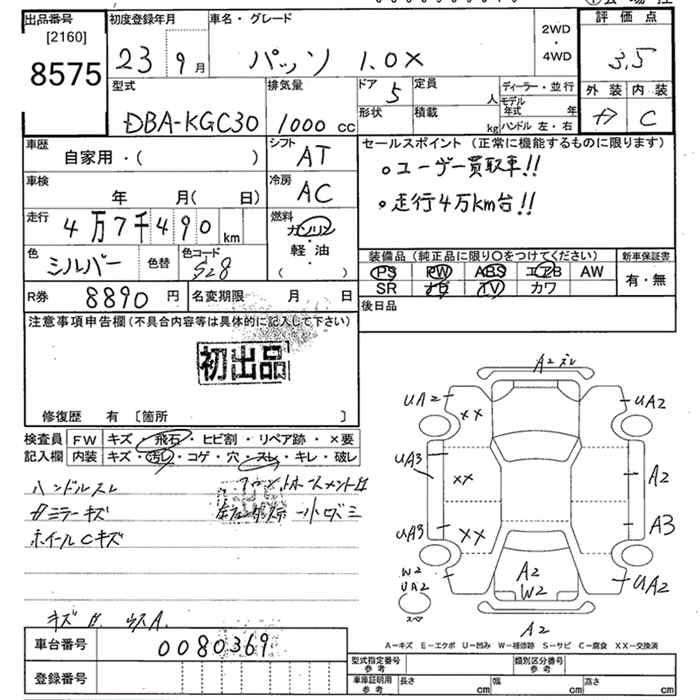 出品番号 初度登録年月 車名・グレード 2WD・4WD 評価点
[2160]
8575 23 9月 パッソ 1.0X 3.5
型式 排気量 ドア 定員 ディーラー・並行 外装 内装
DBA-KGC30 1000cc 5 人 モデル年式 年 C
形状 積載 kg ハンドル 左・右
車歴 シフト セールスポイント(正常に機能するものに限ります)
自家用・( ) AT
。ユーザー買取車!!
車検 冷房
年 月(日) AC
・走行4万km台!!
走行 燃料
4万7千490km ガソリン
軽・油
( )
色 色替 色コード 装備品(純正品に限り○をつけてください) 新車保証書
シルバー S28 PS PW ABS エアB AW 有・無
SR ナビ TV カワ
R券 8890円 名変期限 月 日 後日品
注意事項申告欄(不具合内容等は具体的に記入して下さい)
初出品
修復歴 有 〔箇所 〕
検査員 FW キズ・飛石・ヒビ割・リペア跡・×要
記入欄 内装 キズ・汚し・コゲ・穴・スレ・キレ・破レ
ハンドルスレ
ホイールCキズ
A2
UA2 ×× UA2
UA3 ×× A2
UA3 ×× A3
W2 UA2 A2 W2 UA2
スペア
A2
A-キズ E-エクボ U-凹み W-補修跡 S-サビ C-腐食 XX-交換済
車台番号 0080369
登録番号
型式指定番号 参考 類別区分番号 参考
車庫証明用 参考 長さ cm 幅 cm 高さ cm